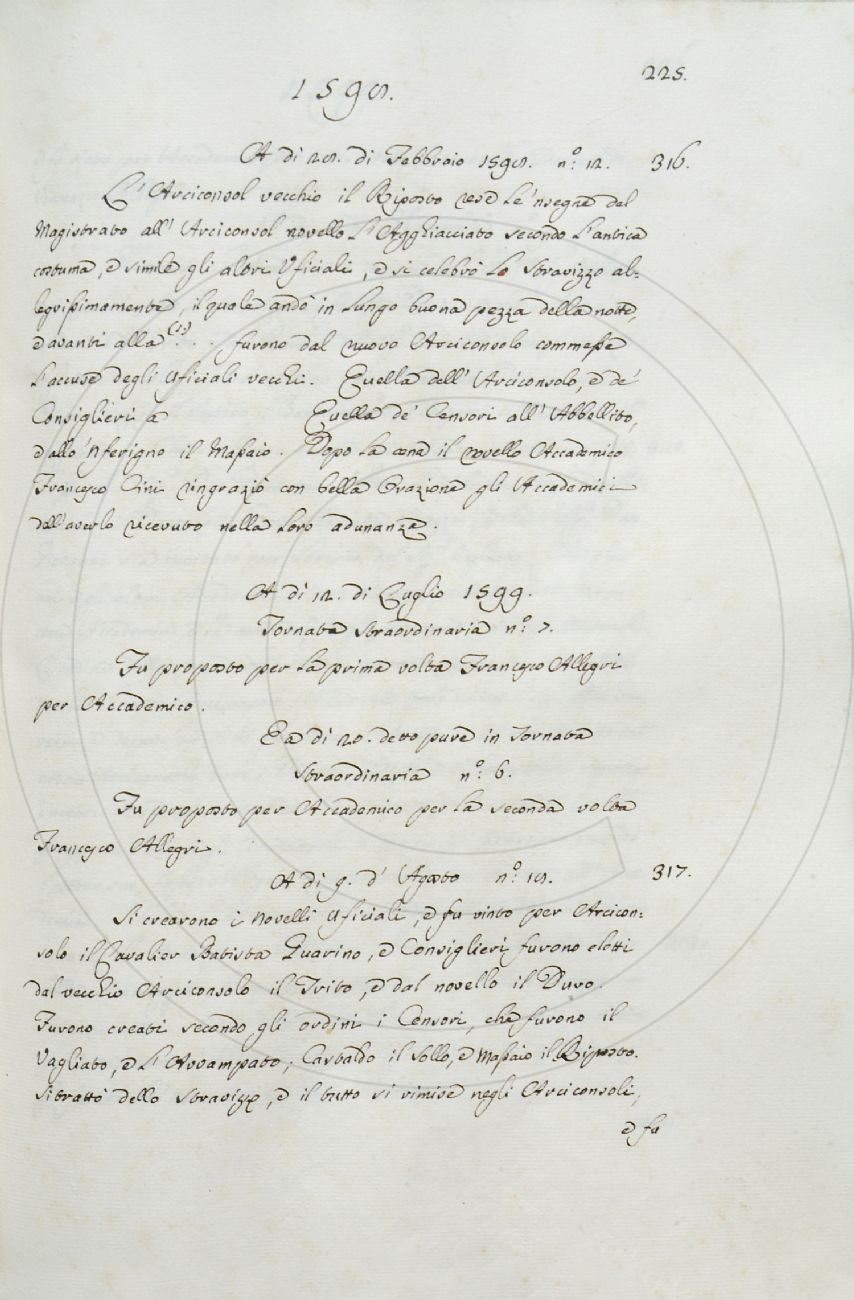 225.
1598.
A dì 28. di Febbraio 1598. n.º: 12. 316.
L'Arciconsol vecchio il Riposto rese le 'nsegne del
Magistrato all'Arciconsol novello l'Agghiacciato secondo l'antica
costuma, e simile gli altri Uficiali, e si celebrò lo stravizzo al-
legrissimamente, il quale andò in lungo buona pezza della notte,
e avanti alla (1) . . . furono dal nuovo Arciconsolo commesse
l'accuse degli Uficiali vecchi. Quella dell'Arciconsolo, e de'
Consiglieri a Quella de' Censori all'Abbellito,
e allo 'nferigno il Massaio. Dopo la cena il novello Accademico
Francesco Cini ringraziò con bella Orazione gli Accademici
dell'averlo ricevuto nella loro adunanza.
A dì 12. di Luglio 1599.
Tornata straordinaria n.º 7.
Fu proposto per la prima volta Francesco Allegri
per Accademico.
E a dì 20. detto pure in Tornata
straordinaria n.º: 6.
Fu proposto per Accademico per la seconda volta
Francesco Allegri.
A dì 9. d'Agosto n.º: 18. 317.
Si crearono i novelli Uficiali, e fu vinto per Arcicon-
solo il Cavalier Batista Guarino, e Consiglieri furono eletti
dal vecchio Arciconsolo il Trito, e dal novello il Duro.
Furono creati secondo gli ordini i Censori, che furono il
Vagliato, e l'Avvampato; Castaldo il Sollo, e Massaio il Riposto.
Si trattò dello stravizzo, e il tutto si rimise negli Arciconsoli,
e fu